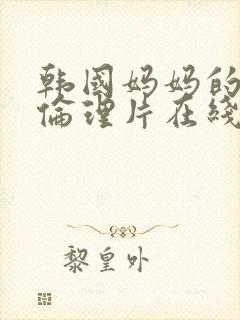 韩国妈妈的
倫理片在线
黎皇外